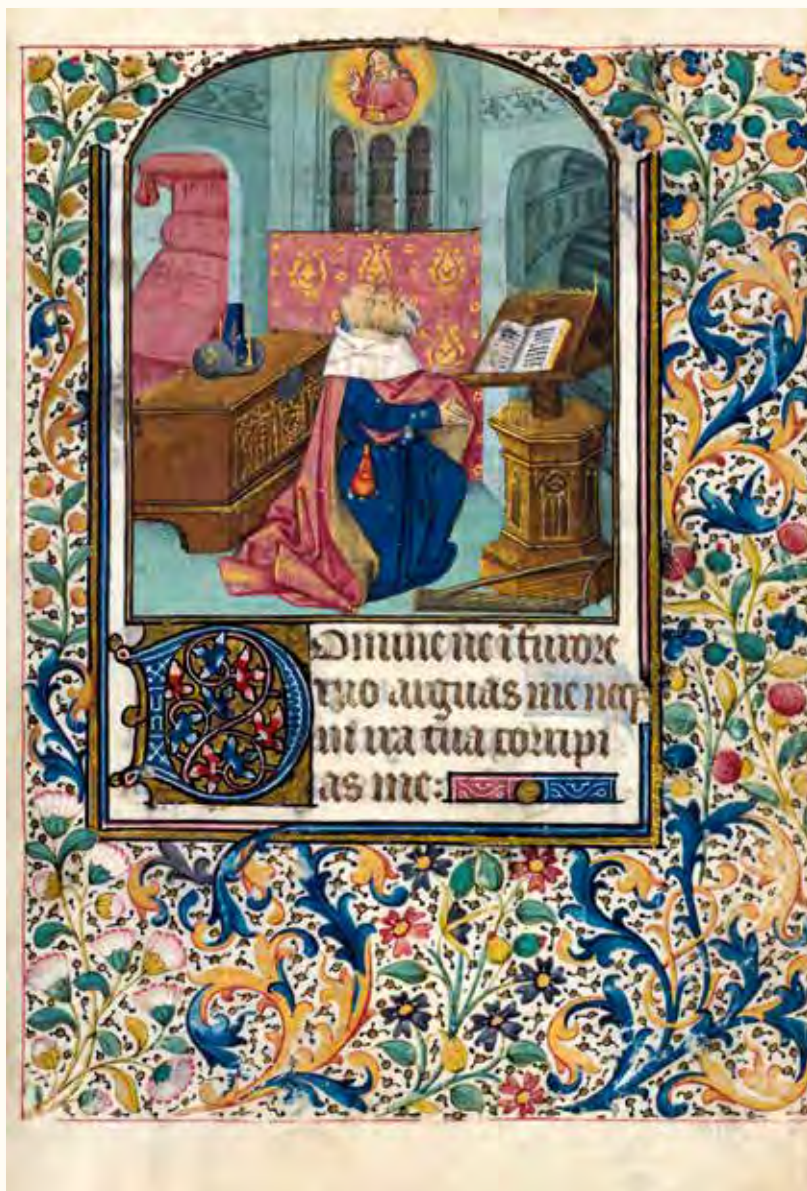 Domine ne i furore
tuo arguas me neqꝫ
in ira tua corripi
as me: